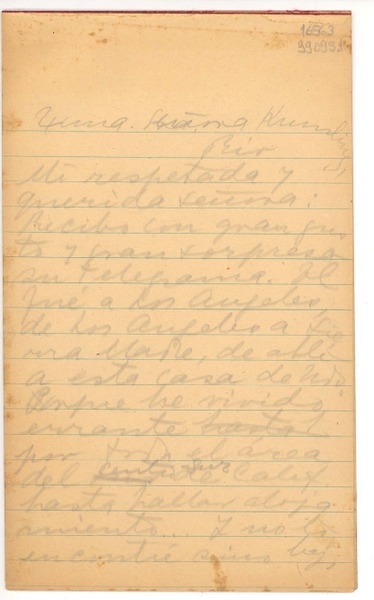 16563
990951
Exma. Señora
Rio
Mi respetada y
querida señora:
Recibo con gran gus-
to y gran sorpresa
su telegrama. El
fué a Los Angeles,
de Los Angeles a Sie-
rra Madre, de allí
a esta casa de
Porque he vivido
errante hasta
por todo el área
del centro Sur de Calif
hasta hallar aloja-
miento... Y no lo
encontré sino